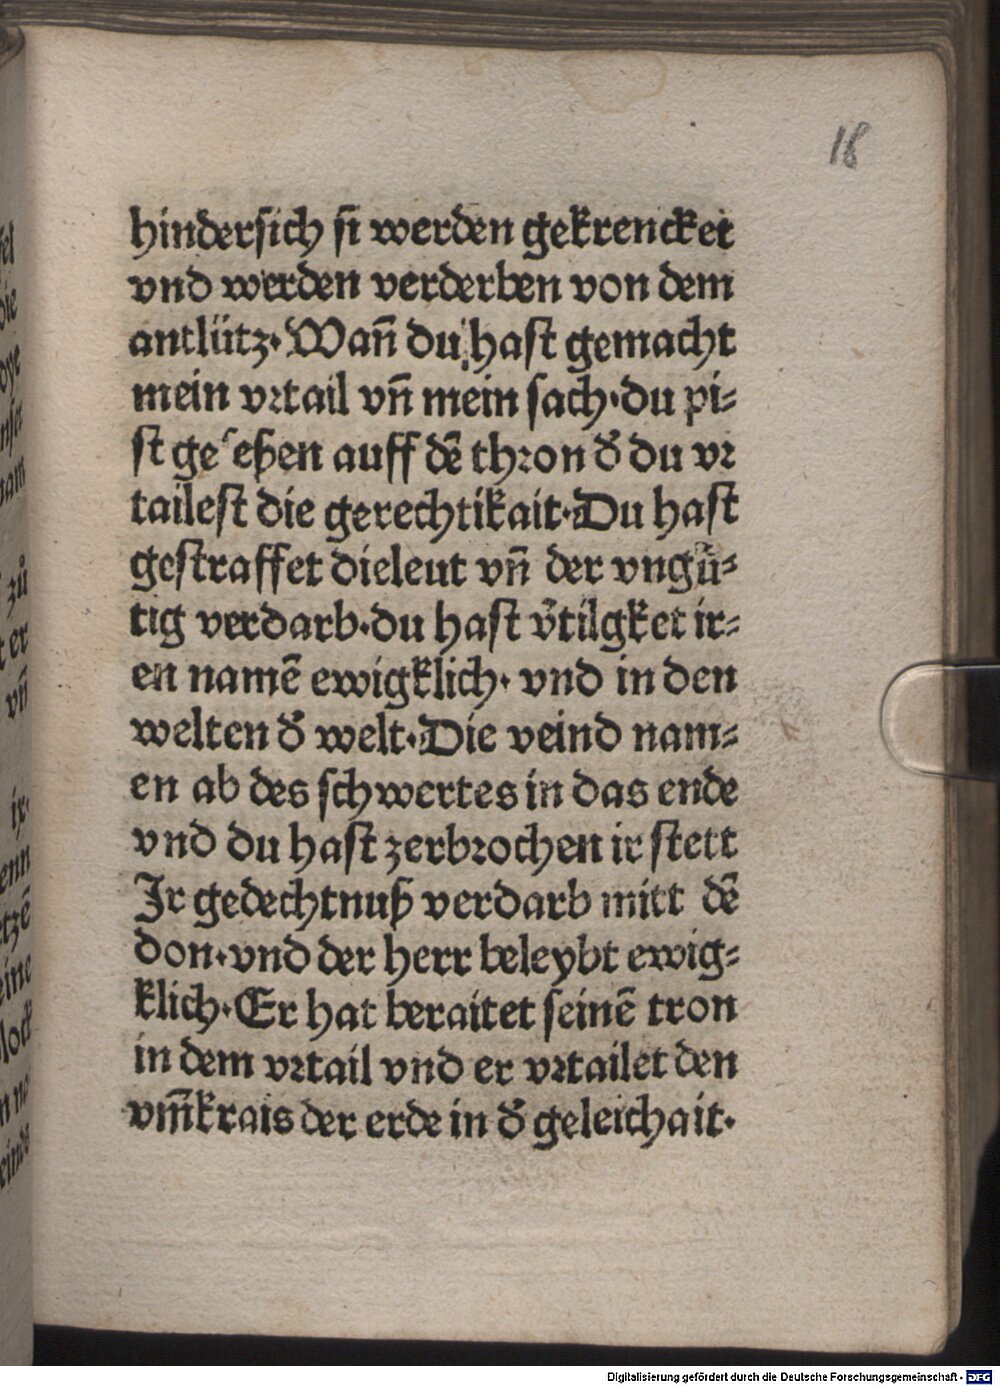 18
hinderſich ſi werden gekrencket
vnd werden verderben von dem
antlütz. Wañ du haſt gemacht
mein vꝛtail vñ mein ſach. du pi⸗
ſt geſeßen auff dē thꝛon đ du vꝛ
taileſt die gerechtikait. Du haſt
geſtraffet dieleut vñ der vngů⸗
tig verdarb. du haſt v̄tilgket ir⸗
en namē ewigklich. vnd in den
welten đ welt. Die veind nam⸗
en ab des ſchwertes in das ende
vnd du haſt zerbꝛochen ir ſtett
Jr gedechtnuß verdarb mitt dē
don. vnd der herr beleybt ewig⸗
klich. Er hat beraitet ſeinē tron
in dem vꝛtail vnd er vꝛtailet den
vm̄krais der erde in đ geleichait.
Digitalisierung gefördert durch die Deutsche Forschungsgemeinschaft - DFG